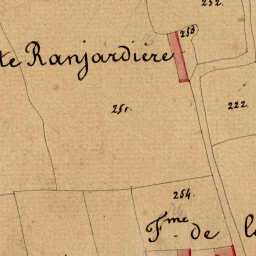 252.
253
te Ranjardière
251.
222.
254.
F.me de